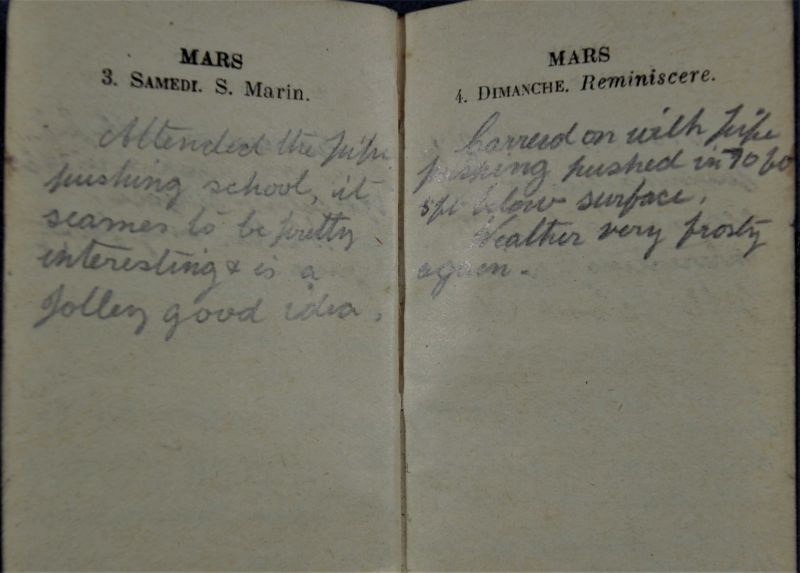 MARS
3. SAMEDI. S. Marin.
Attended the pipe
pushing school, it
seames to be pretty
interesting & is a
Jolley good idea.
MARS
4. DIMANCHE. Reminiscere.
Carried on with pipe
pushing pushed in 70 fo
5ft below surface.
Weather very frosty
again.